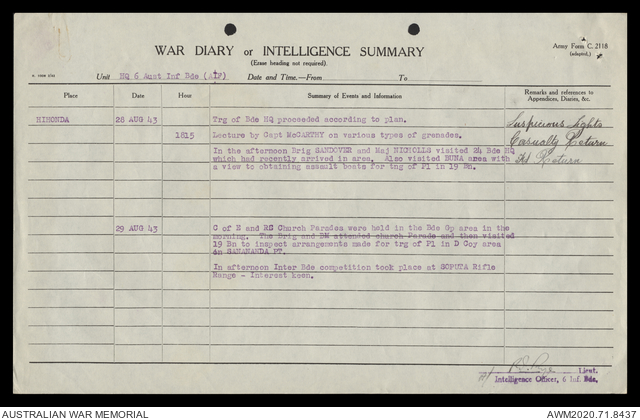 WAR DIARY or INTELLIGENCE SUMMARY
(Erase heading not required).
Army Form C. 2118
(adapted.)
Unit HQ 6 Aust Inf Bde (AIF) Date and Time.—From To
Place Date Hour Summary of Events and Information Remarks and references to Appendices, Diaries, &c.
HIHONDA 28 AUG 43 Trg of Bde HQ proceeded according to plan.
Suspicious Lights
1815 Lecture by Capt McCARTHY on various types of grenades.
Casualty Return
In the afternoon Brig SANDOVER and Maj NICHOLLS visited 24 Bde HQ
which had recently arrived in area. Also visited BUNA area with
Return
a view to obtaining assault boats for trg of Pl in 19 Bn.
29 AUG 43 C of E and RC Church Parades were held in the Bde Gp area in the
morning. The Brig and BM attended church Parade and then visited
19 Bn to inspect arrangements made for trg of Pl in D Coy area
on SANANANDA PT.
In afternoon Inter Bde competition took place at SOPUTA Rifle
Range - Interest keen.
Lieut.
Intelligence Officer, 6 Inf. Bde.
AUSTRALIAN WAR MEMORIAL AWM2020.71.8437